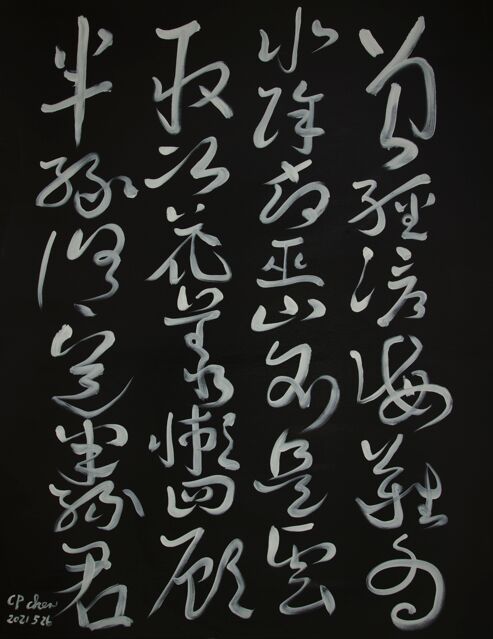 曾經滄海難為
水除却巫山不是雲
取次花叢懶回顧
半緣修道半緣君
CP chen
2021 5 26